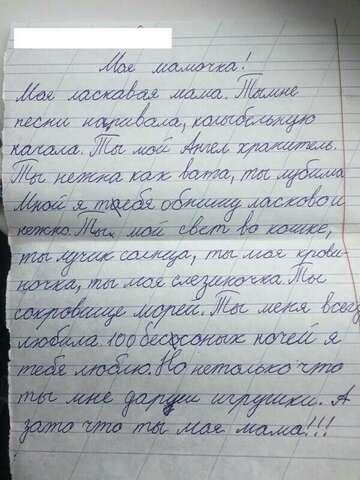 Моя мамочка!
Моя ласковая мама. Ты мне
песни наривала, колыбельную
качала. Ты мой Ангел хранитель.
Ты нежна как вата, ты лубила
Мной я тебя обниму ласково и
нежно. Ты мой свет во кошке,
ты лучик солнца, ты моя крови-
ночка, ты моя слезиночка. Ты
сокровище морей. Ты меня всегд
любила. 100 бессоных ночей я
тебя люблю. Но нетолько что
ты мне дариш игрушки. А
зато что ты моя мама!!!